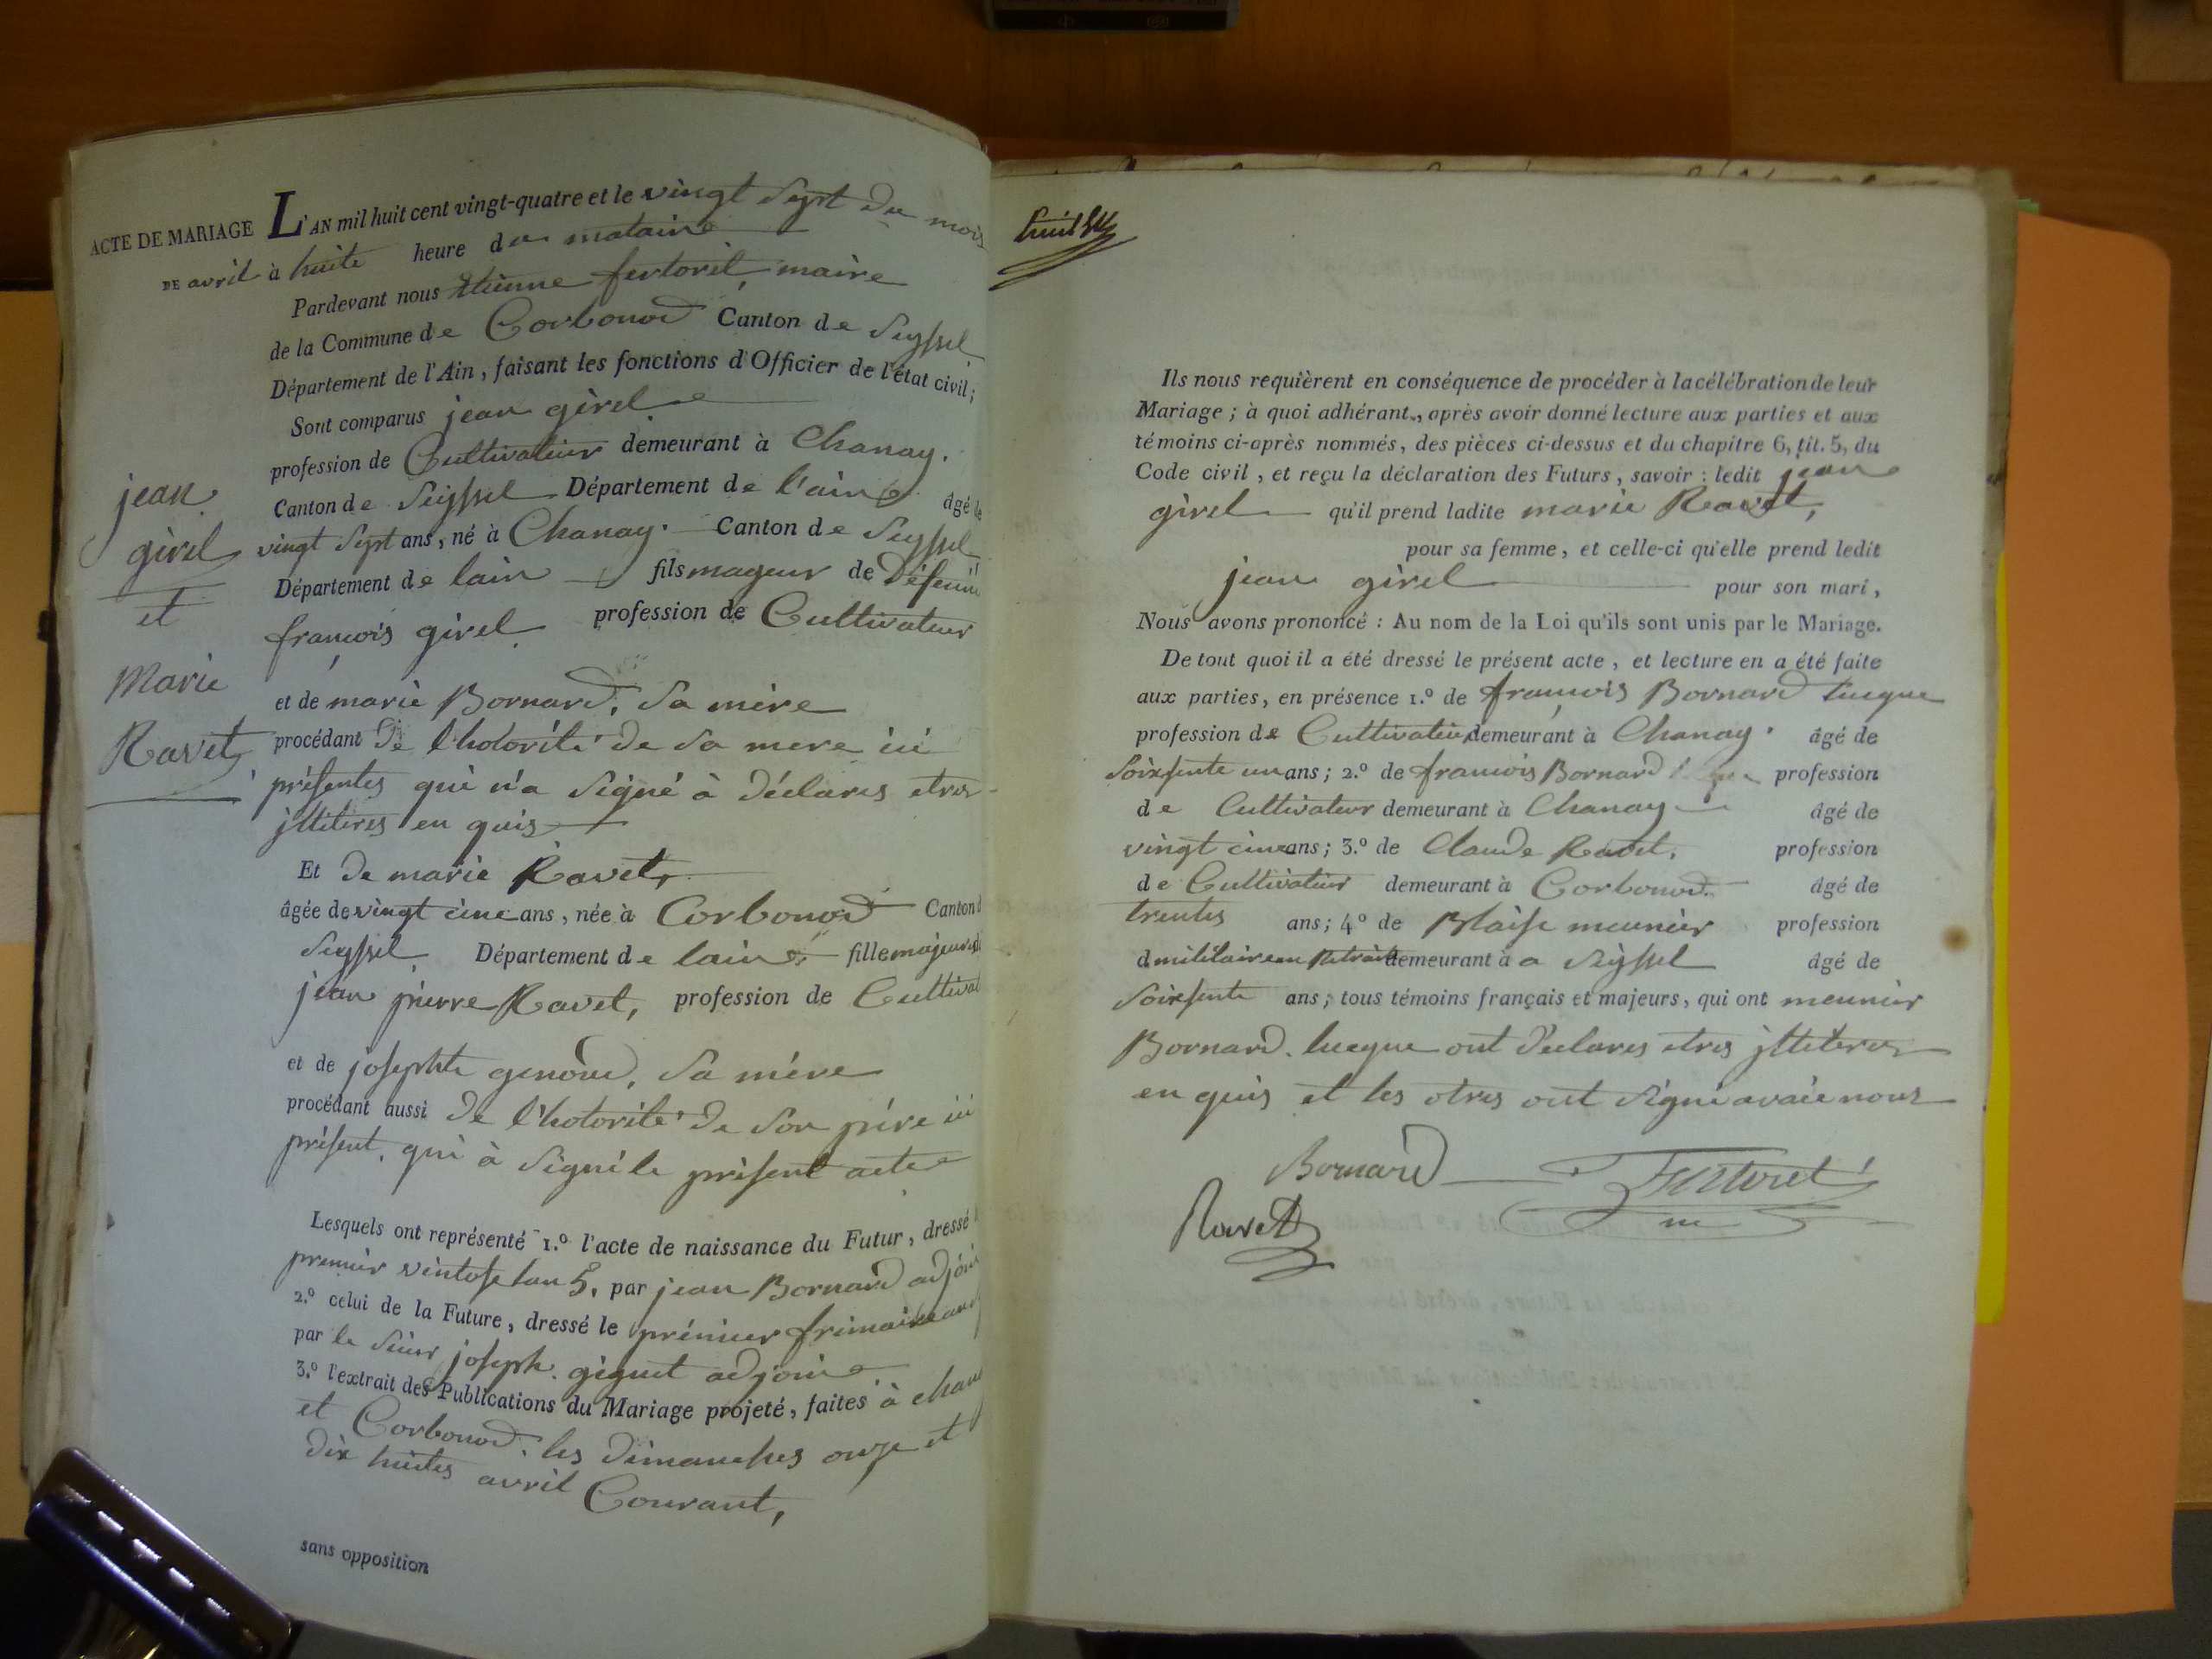 ACTE DE MARIAGE L'AN mil huit cent vingt-quatre et le vingt Sept du mois
DE avril à huite heure du mataine
Pardevant nous Etienne fertoret, maire
de la Commune de Corbonod Canton de Seyssel
Département de l'Ain, faisant les fonctions d'Officier de l'état civil;
Sont comparus jean girel
profession de Cultivateur demeurant à Chanay.
Canton de Seyssel Département de l'ain âgé de
vingt Sept ans, né à Chanay. Canton de Seyssel
Département de lain fils mageur de défeun
francois girel profession de Cultivateur
et de marie Bornard, Sa mère
procédant de l'hotorité de Sa mere ici
présentes qui n'a Signé à déclares etres
jlliteres en quis
Et de marie Ravet,
âgée de vingt cinc ans, née à Corbonod Canton d
Seyssel Département de lain fille majeure de
jean pierre Ravet, profession de Cultivat
et de josephte genoud, Sa mére
procédant aussi de l'hotorité de Son pére ici
présent, qui à Signé le présent acte
Lesquels ont représenté 1.º l'acte de naissance du Futur, dressé
premier ventose lan 5, par jean Bornard adjoin
2.º celui de la Future, dressé le prémier frimaire an
par le Sieur joseph giguet adjoin
3.º l'extrait des Publications du Mariage projeté, faites à chana
et Corbonod. les dimanches onze et
dix huites avril Courant,
sans opposition
jean
girel
et
Marie
Ravet
Ils nous requièrent en conséquence de procéder à la célébration de leur
Mariage; à quoi adhérant, après avoir donné lecture aux parties et aux
témoins ci-après nommés, des pièces ci-dessus et du chapitre 6, tit. 5, du
Code civil, et reçu la déclaration des Futurs, savoir: ledit jean
girel qu'il prend ladite marie Ravet,
pour sa femme, et celle-ci qu'elle prend ledit
jean girel pour son mari,
Nous avons prononcé: Au nom de la Loi qu'ils sont unis par le Mariage.
De tout quoi il a été dressé le présent acte, et lecture en a été faite
aux parties, en présence 1.º de francois Bornard lucque
profession de Cultivateur demeurant à Chanay. âgé de
Soixsente un ans; 2.º de francois Bornard profession
de Cultivateur demeurant à Chanay âgé de
vingt cinc ans; 3.º de Claude Ravet, profession
de Cultivateur demeurant à Corbonod. âgé de
trentes ans; 4.º de Blaise meunier profession
d militaire en Retraite demeurant à a Seyssel âgé de
Soixsente ans; tous témoins français et majeurs, qui ont meunier
Bornard. lucque ont déclares etres jlliteres
en quis et les otres ont Signé avaic nous
Bornard Fertoret
Ravet m